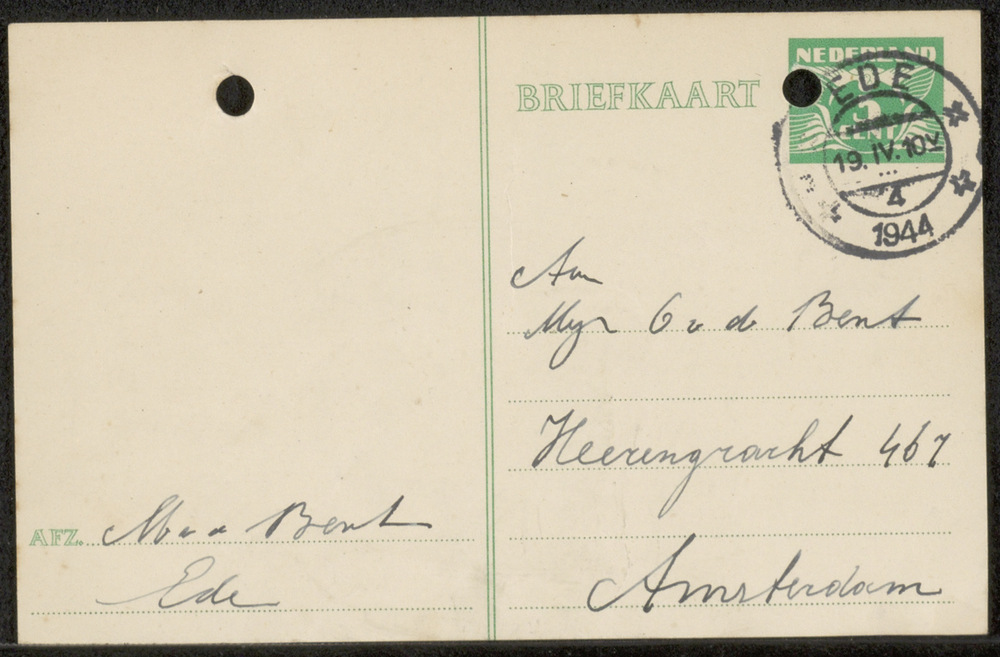 BRIEFKAART
NEDERLAND
5
CENT
EDE
19.IV.10V
4
1944
Aan
G v d Bent
Heerengracht 467
Amsterdam
AFZ. Bent
Ede